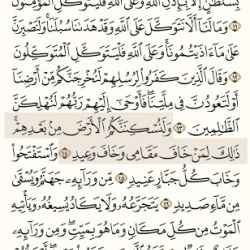 بِسُلْطَٰنٍ إِلَّا بِإِذْنِ ٱللَّهِ وَعَلَى ٱللَّهِ فَلْيَتَوَكَّلِ ٱلْمُؤْمِنُونَ
۝١١ وَمَا لَنَآ أَلَّا نَتَوَكَّلَ عَلَى ٱللَّهِ وَقَدْ هَدَىٰنَا سُبُلَنَا وَلَنَصْبِرَنَّ
عَلَىٰ مَآ ءَاذَيْتُمُونَا وَعَلَى ٱللَّهِ فَلْيَتَوَكَّلِ ٱلْمُتَوَكِّلُونَ
۝١٢ وَقَالَ ٱلَّذِينَ كَفَرُوا۟ لِرُسُلِهِمْ لَنُخْرِجَنَّكُم مِّنْ أَرْضِنَآ
أَوْ لَتَعُودُنَّ فِى مِلَّتِنَا فَأَوْحَىٰٓ إِلَيْهِمْ رَبُّهُمْ لَنُهْلِكَنَّ
ٱلظَّٰلِمِينَ ۝١٣ وَلَنُسْكِنَنَّكُمُ ٱلْأَرْضَ مِنۢ بَعْدِهِمْ
ذَٰلِكَ لِمَنْ خَافَ مَقَامِى وَخَافَ وَعِيدِ ۝١٤ وَٱسْتَفْتَحُوا۟
وَخَابَ كُلُّ جَبَّارٍ عَنِيدٍ ۝١٥ مِّن وَرَآئِهِۦ جَهَنَّمُ وَيُسْقَىٰ
مِن مَّآءٍ صَدِيدٍ ۝١٦ يَتَجَرَّعُهُۥ وَلَا يَكَادُ يُسِيغُهُۥ وَيَأْتِيهِ
ٱلْمَوْتُ مِن كُلِّ مَكَانٍ وَمَا هُوَ بِمَيِّتٍ وَمِن وَرَآئِهِۦ